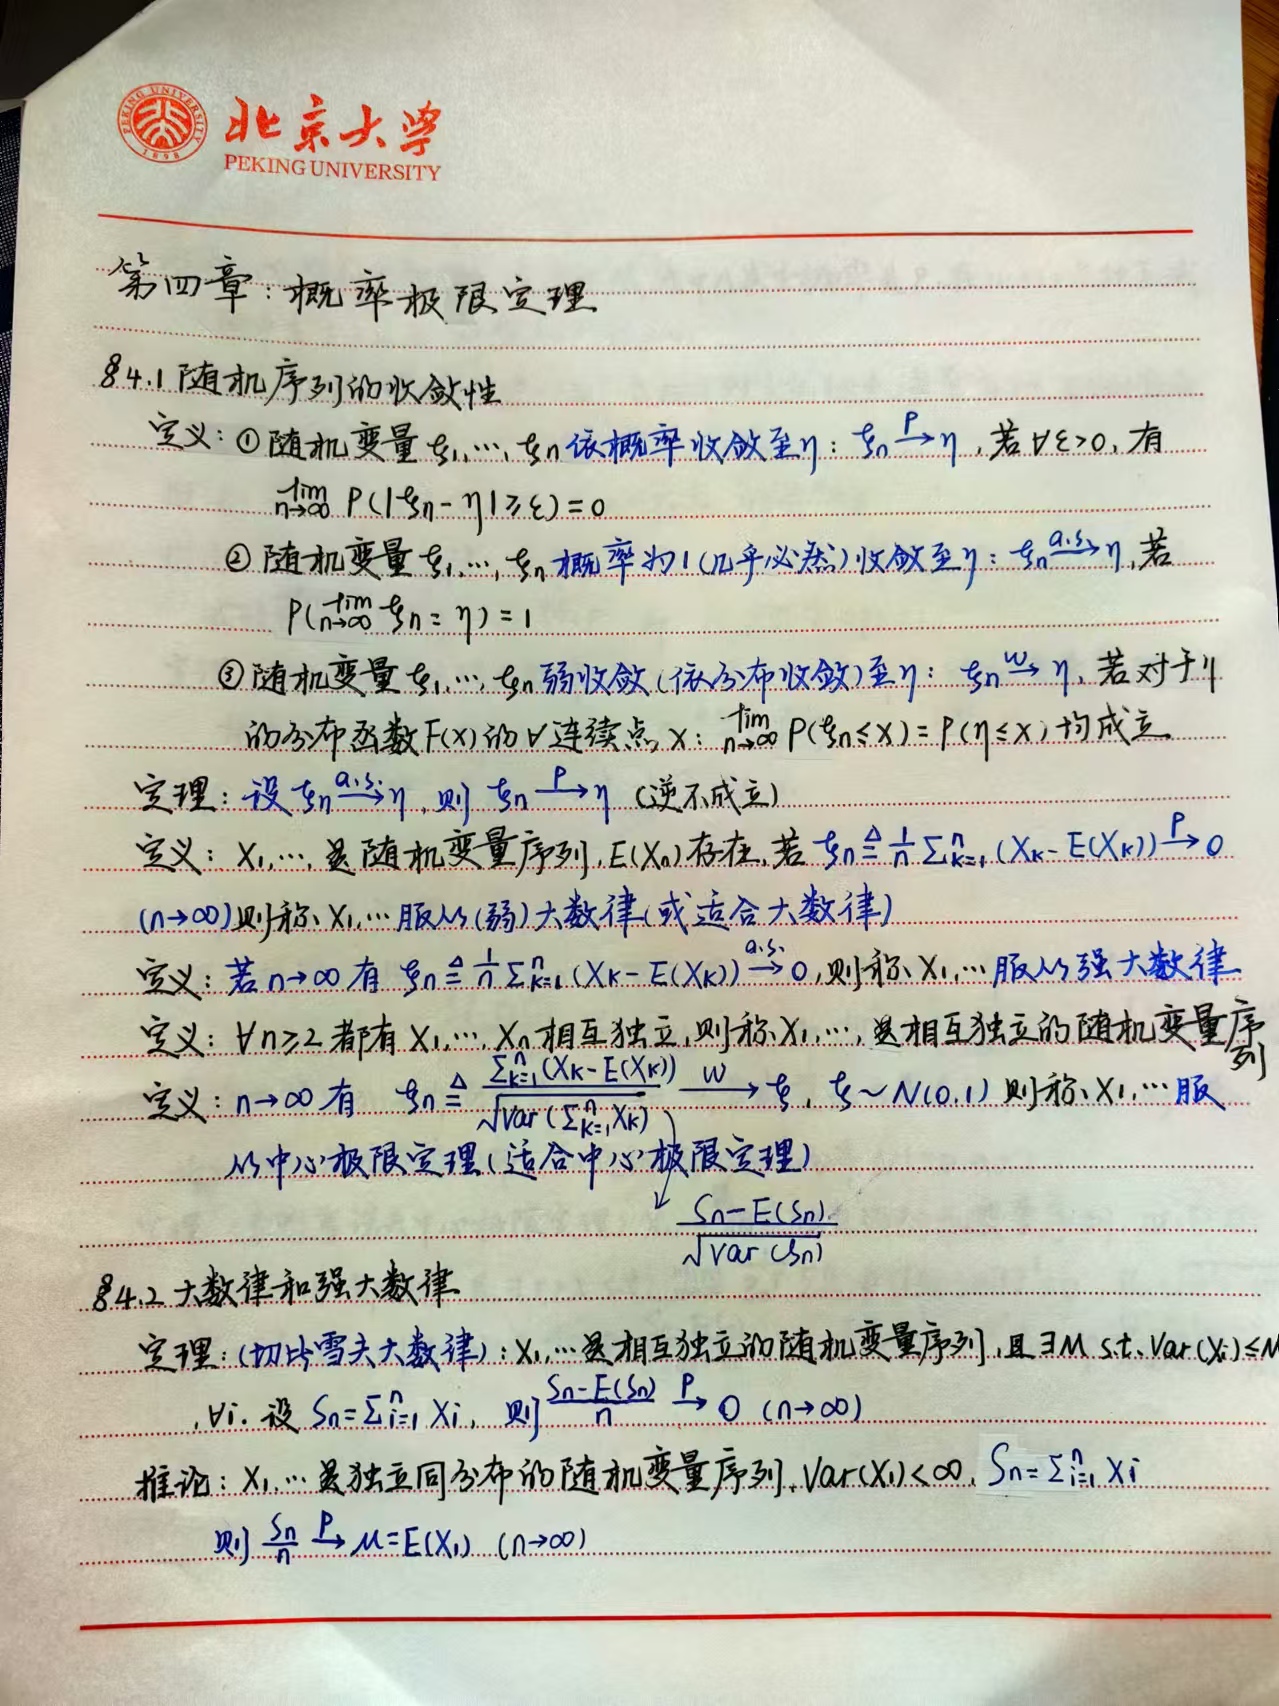 PEKING UNIVERSITY
1898
北京大学
PEKING UNIVERSITY
第四章：概率极限定理
§4.1 随机序列的收敛性
定义：① 随机变量 ξ₁,…,ξn 依概率收敛至η：ξn —P→ η，若∀ε>0，有
lim n→∞ P(|ξn-η|≥ε)=0
② 随机变量 ξ₁,…,ξn 概率为1(几乎必然)收敛至η：ξn —a.s.→ η，若
P(lim n→∞ ξn=η)=1
③ 随机变量 ξ₁,…,ξn 弱收敛(依分布收敛)至η：ξn —w→ η，若对于η
的分布函数F(x)的∀连续点x：lim n→∞ P(ξn≤x)=P(η≤x)均成立
定理：设 ξn —a.s.→ η，则 ξn —P→ η (逆不成立)
定义：X₁,…,是随机变量序列,E(Xn)存在,若 ξn ≜ 1/n Σⁿk=1 (Xk-E(Xk)) —P→ 0
(n→∞)则称X₁,…服从(弱)大数律(或适合大数律)
定义：若n→∞有 ξn ≜ 1/n Σⁿk=1 (Xk-E(Xk)) —a.s.→ 0,则称X₁,…服从强大数律
定义：∀n≥2都有X₁,…,Xn相互独立,则称X₁,…,是相互独立的随机变量序列
定义：n→∞有 ξn ≜ Σⁿk=1(Xk-E(Xk)) / √Var(Σⁿk=1 Xk) —w→ ξ, ξ~N(0,1) 则称X₁,…服
从中心极限定理(适合中心极限定理)
Sn-E(Sn) / √Var(Sn)
§4.2 大数律和强大数律
定理：(切比雪夫大数律)：X₁,…是相互独立的随机变量序列,且∃M s.t. Var(Xi)≤M
,∀i. 设 Sn=Σⁿi=1 Xi, 则 Sn-E(Sn) / n —P→ 0 (n→∞)
推论：X₁,…是独立同分布的随机变量序列,Var(X₁)<∞, Sn=Σⁿi=1 Xi
则 Sn/n —P→ μ=E(X₁) (n→∞)